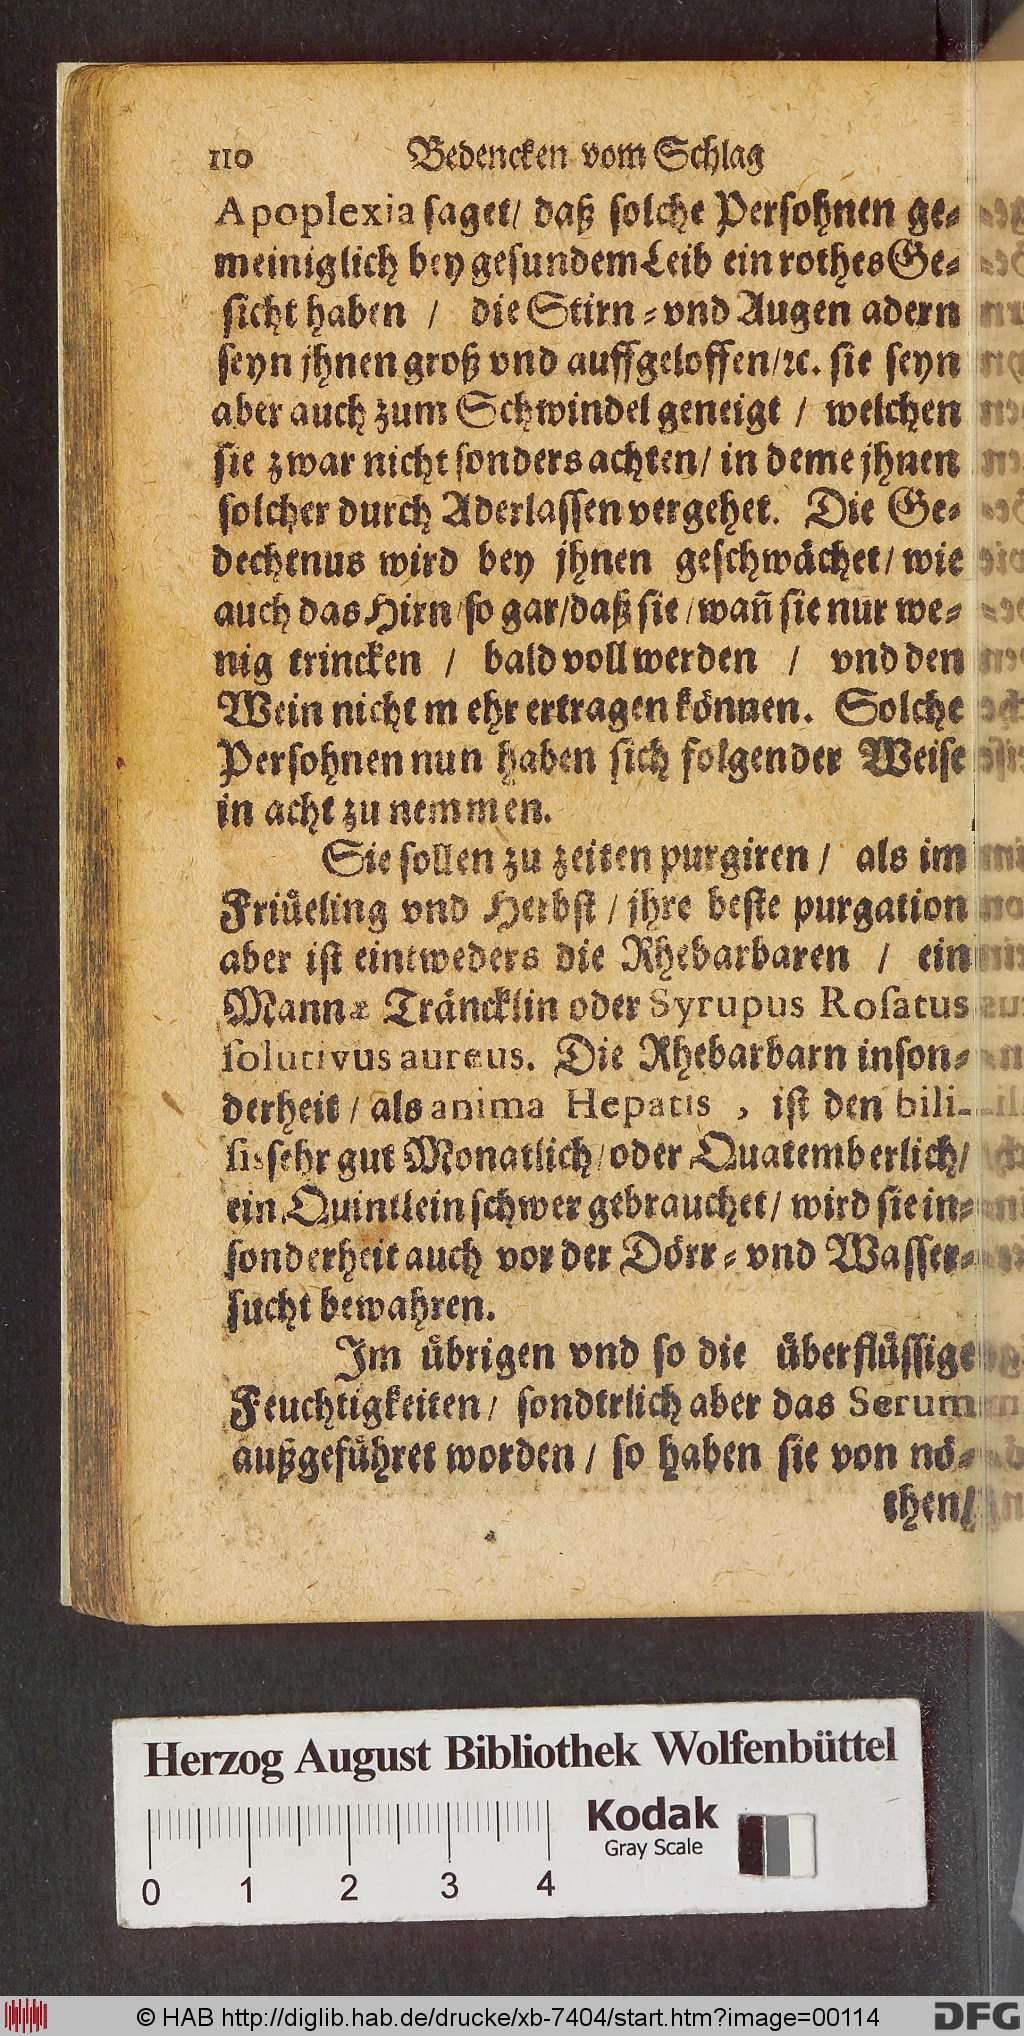 110 Bedencken vom Schlag
Apoplexia saget/ daß solche Persohnen ge-
meiniglich bey gesundem Leib ein rothes Ge-
sicht haben / die Stirn- vnd Augen adern
seyn jhnen groß vnd auffgeloffen/ꝛc. sie seyn
aber auch zum Schwindel geneigt / welchen
sie zwar nicht sonders achten/ in deme jhnen
solcher durch Aderlassen vergehet. Die Ge-
dechtnus wird bey jhnen geschwächet/ wie
auch das Hirn/so gar/daß sie/wañ sie nur we-
nig trincken / bald voll werden / vnd den
Wein nicht m ehr ertragen können. Solche
Persohnen nun haben sich folgender Weise
in acht zu nemmen.
Sie sollen zu zeiten purgiren / als im
Friüeling vnd Herbst / jhre beste purgation
aber ist eintweders die Rhebarbaren / ein
Mannæ Träncklin oder Syrupus Rosatus
solutivus aureus. Die Rhebarbarn inson-
derheit / als anima Hepatis , ist den bili-
sis sehr gut Monatlich/oder Quatemberlich/
ein Quintlein schwer gebrauchet/ wird sie in-
sonderheit auch vor der Dörr- vnd Wasser-
sucht bewahren.
Im übrigen vnd so die überflüssige
Feuchtigkeiten/ sondtrlich aber das Serum
außgeführet worden / so haben sie von nö-
then/
Herzog August Bibliothek Wolfenbüttel
Kodak
Gray Scale
0 1 2 3 4
© HAB http://diglib.hab.de/drucke/xb-7404/start.htm?image=00114
DFG